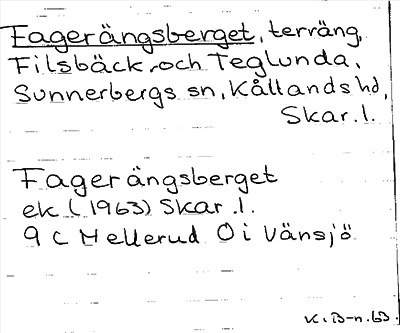 Fagerängsberget, terräng,
Filsbäck och Teglunda,
Sunnerbergs sn, Kållands hd,
Skar. l.
Fagerängsberget
ek (1963) Skar. l.
9 C Mellerud O i Vänsjö
K. B-n. 63.